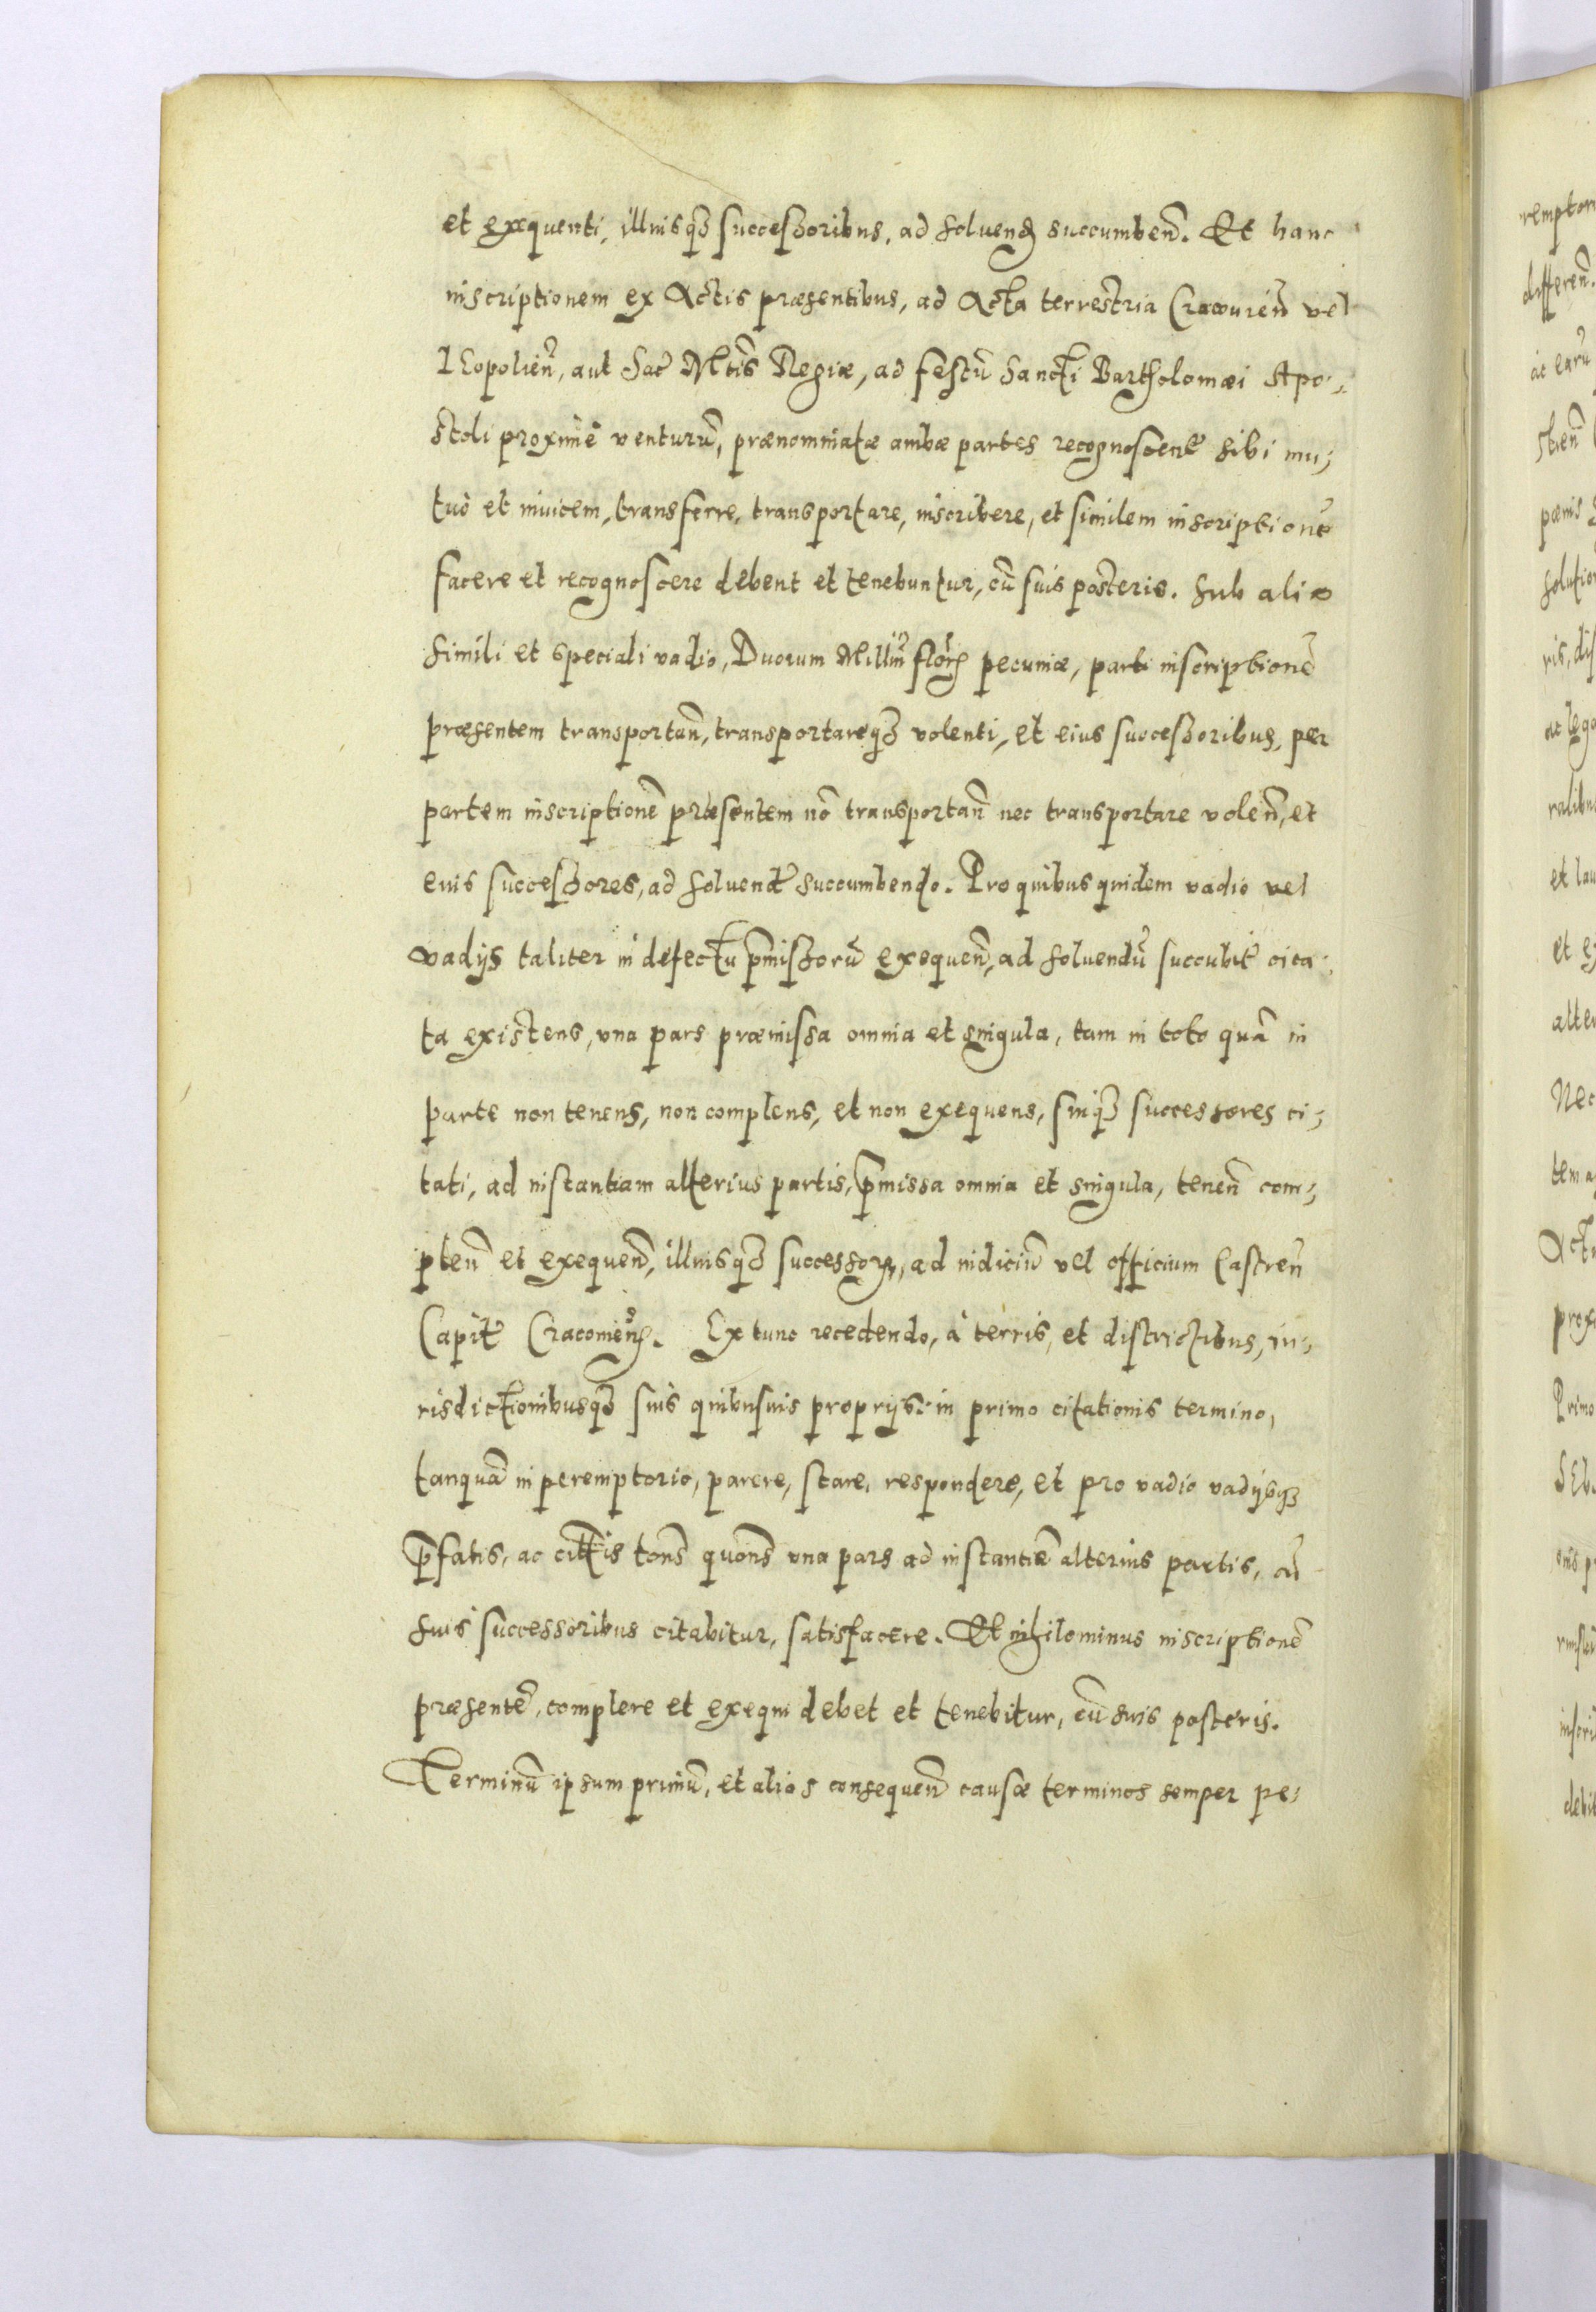 et exequenti, illiusq3 successoribus, ad soluend succumbeñ. Et hanc
inscriptionem ex Actis præsentibus, ad Acta terrestria Cracouieñ vel
Leopolieñ, aut Sac̃ Mtis̃ Regiæ, ad festũ Sancti Bartholomæi Apo-
stoli proximè venturũ, prænominatæ ambæ partes recognoscent̃ sibi mu-
tuò et inuicem, transferre, transportare, inscribere, et similem inscriptionẽ
facere et recognoscere debent et tenebuntur, cũ suis posteris. Sub alio
simili et speciali vadio, Duorum Milliũ florꝝ pecuniæ, parti inscriptionẽ
præsentem transportañ, transportareq3 volenti, et eius successoribus, per
partem inscriptionẽ præsentem nõ transportañ nec transportare voleñ, et
eius successores, ad soluend̃ succumbendo. Pro quibus quidem vadio vel
vadijs taliter in defectu p̃missorũ exequeñ, ad soluendũ succubit̃ cita-
ta existens, vna pars præmissa omnia et singula, tam in toto quã in
parte non tenens, non complens, et non exequens, suiq3 successores ci-
tati, ad instantiam alterius partis, p̃missa omnia et singula, teneñ com-
pleñ et exequeñ, illiusq3 successorꝝ, ad iudiciũ vel officium Castreñ
Capit̃ Cracouieñ. Ex tunc recedendo, à terris, et districtibus, iu-
risdictionibusq3 suis quibusuis proprijs: in primo citationis termino,
tanquã in peremptorio, parere, stare, respondere, et pro vadio vadijsq3
p̃fatis, ac citt̃is tons̃ quons̃ vna pars ad instantiã alterius partis, cũ
suis successoribus citabitur, satisfacere. Et nihilominus inscriptionẽ
præsentẽ, complere et exequi debet et tenebitur, cũ suis posteris.
Terminũ ipsum primũ, et alios consequeñ causæ terminos semper pe-